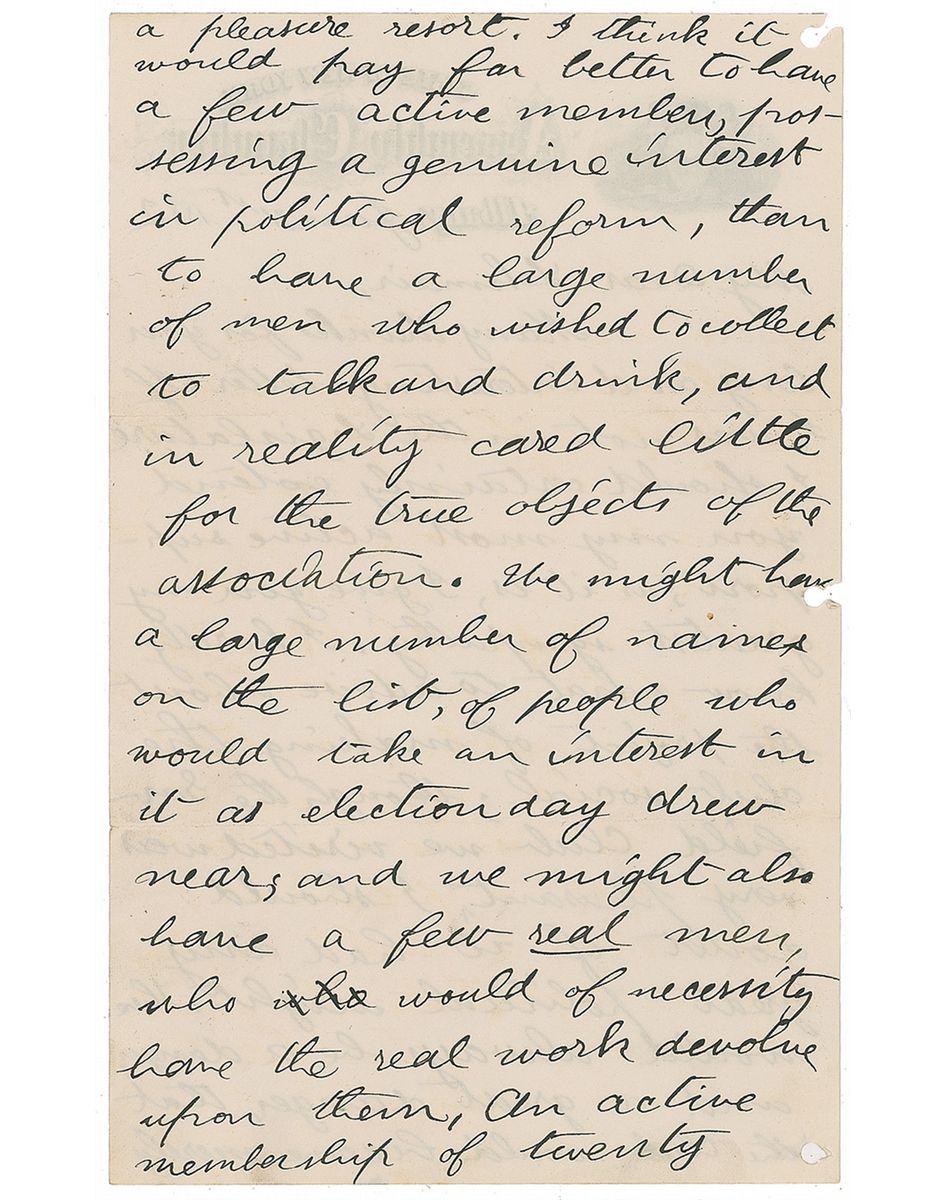 a pleasure resort. I think it
would pay far better to have
a few active members, pos-
sessing a genuine interest
in political reform, than
to have a large number
of men who wished to collect
to talk and drink, and
in reality cared little
for the true objects of the
association. We might have
a large number of names
on the list, of people who
would take an interest in
it as election day drew
near; and we might also
have a few real men,
who who would of necessity
have the real work devolve
upon them, An active
membership of twenty